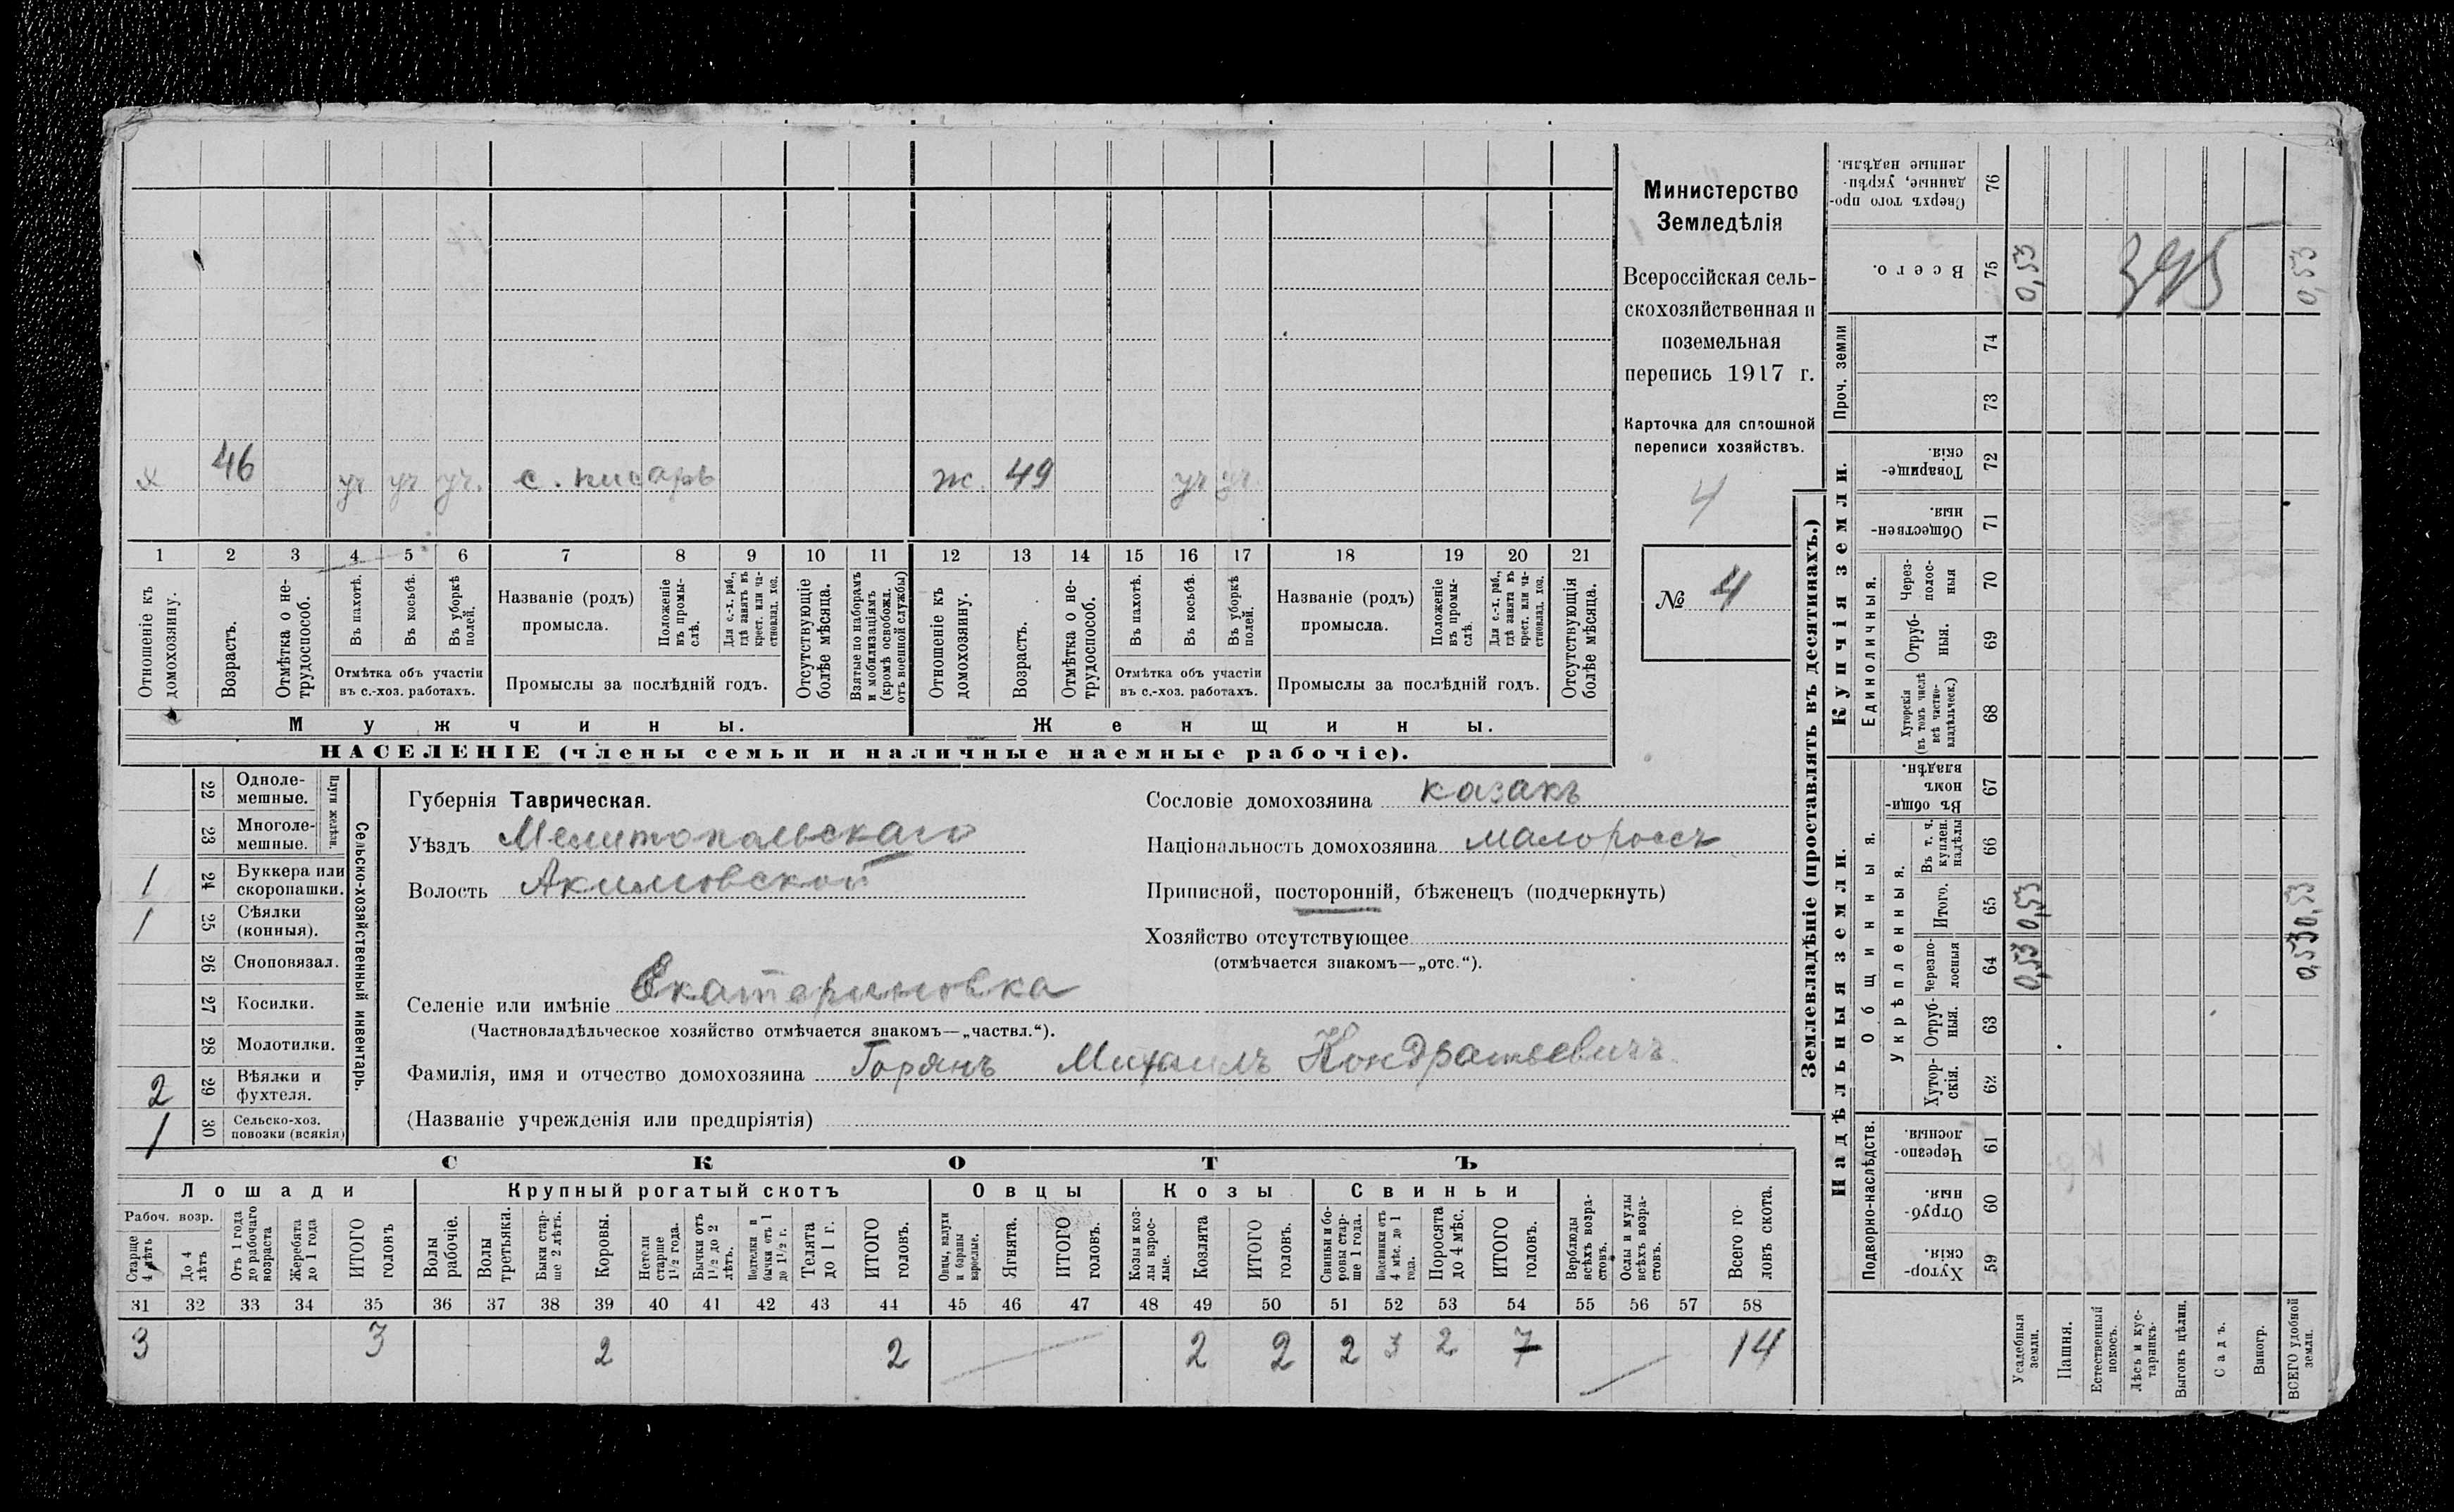 х 46 уч уч уч. с. писарь ж. 49 уч уч.
1 2 3 4 5 6 7 8 9 10 11 12 13 14 15 16 17 18 19 20 21
Отношеніе къ домохозяину.
Возрастъ.
Отмѣтка о не-
трудоспособ.
Въ пахотѣ.
Въ косьбѣ.
Въ уборкѣ полей.
Отмѣтка объ участіи
въ с.-хоз. работахъ.
Названіе (родъ)
промысла.
Положеніе
въ промы-
слѣ.
Для с.-х. раб.,
гдѣ занятъ въ
крест. или ча-
стновлад. хоз.
Промыслы за послѣдній годъ.
Отсутствующіе
болѣе мѣсяца.
Взятые по наборамъ
и мобилизаціямъ
(кромѣ освобожд.
отъ военной службы)
Отношеніе къ
домохозяину.
Возрастъ.
Отмѣтка о не-
трудоспособ.
Въ пахотѣ.
Въ косьбѣ.
Въ уборкѣ
полей.
Отмѣтка объ участіи
въ с.-хоз. работахъ.
Названіе (родъ)
промысла.
Положеніе
въ промы-
слѣ.
Для с.-х. раб.,
гдѣ занята въ
крест. или ча-
стновлад. хоз.
Промыслы за послѣдній годъ.
Отсутствующія
болѣе мѣсяца.
Мужчины. Женщины.
НАСЕЛЕНІЕ (члены семьи и наличные наемные рабочіе).
Министерство
Земледѣлія
Всероссійская сель-
скохозяйственная и
поземельная
перепись 1917 г.
Карточка для сплошной
переписи хозяйствъ.
4
№ 4
22 Одноле-
мешные.
23 Многоле-
мешные.
Плуги желѣзн.
1 24 Буккера или
скоропашки.
1 25 Сѣялки
(конныя).
26 Сноповязал.
27 Косилки.
28 Молотилки.
2 29 Вѣялки и
фухтеля.
1 30 Сельско-хоз.
повозки (всякія)
Сельско-хозяйственный инвентарь.
Губернія Таврическая.
Уѣздъ Мелитопольскаго
Волость Акимовской
Селеніе или имѣніе Екатериновка
(Частновладѣльческое хозяйство отмѣчается знакомъ—„частвл.“).
Фамилія, имя и отчество домохозяина Горянъ Михаилъ Кондратьевичъ
(Названіе учрежденія или предпріятія)
Сословіе домохозяина казакъ
Національность домохозяина малороссъ
Приписной, посторонній, бѣженецъ (подчеркнуть)
Хозяйство отсутствующее
(отмѣчается знакомъ—„отс.“).
СКОТЪ
Лошади Крупный рогатый скотъ Овцы Козы Свиньи
Рабоч. возр.
Старше
4 лѣтъ
До 4
лѣтъ
Отъ 1 года
до рабочаго
возраста
Жеребята
до 1 года
ИТОГО
головъ
Волы
рабочіе.
Волы
третьяки.
Быки стар-
ше 2 лѣтъ.
Коровы.
Нетели
старше
1½ года.
Бычки отъ
1½ до 2
лѣтъ.
Подтелки и
бычки отъ 1
до 1½ г.
Телята
до 1 г.
ИТОГО
головъ.
Овцы, валухи
и бараны
взрослые.
Ягнята.
ИТОГО
головъ.
Козы и коз-
лы взрос-
лые.
Козлята
ИТОГО
головъ.
Свиньи и бо-
ровы стар-
ше 1 года.
Подсвинки отъ
4 мѣс. до 1
года.
Поросята
до 4 мѣс.
ИТОГО
головъ.
Верблюды
всѣхъ возра-
стовъ.
Ослы и мулы
всѣхъ возра-
стовъ.
Всего го-
ловъ скота.
31 32 33 34 35 36 37 38 39 40 41 42 43 44 45 46 47 48 49 50 51 52 53 54 55 56 57 58
3 3 2 2 2 2 2 3 2 7 14
Землевладѣніе (проставлять въ десятинахъ.)
Надѣльныя земли. Купчія земли.
Проч. земли
Подворно-наслѣдств.
Общинныя.
Укрѣпленныя.
Единоличныя.
59 Хутор-
скія.
60 Отруб-
ныя.
61 Черезпо-
лосныя.
62 Хутор-
скія.
63 Отруб-
ныя.
64 Черезпо-
лосныя
65 Итого.
66 Въ т. ч.
куплен.
надѣлы
67 Въ общи-
номъ
владѣн.
68 Хуторскія
(въ томъ числѣ
всѣ частно-
владѣльческ.)
69 Отруб-
ныя.
70 Через-
полос-
ныя
71 Обществен-
ныя.
72 Товарище-
скія.
73
74
75 Всего.
76 Сверхъ того про-
данные, укрѣп-
ленные надѣлы.
Усадебныя
земли.
0,53 0,53 0,53
Пашня.
Естественный
покосъ.
Лѣсъ и кус-
тарникъ.
Выгонъ цѣлин.
Садъ.
Виногр.
ВСЕГО удобной
земли.
0,53 0,53 0,53